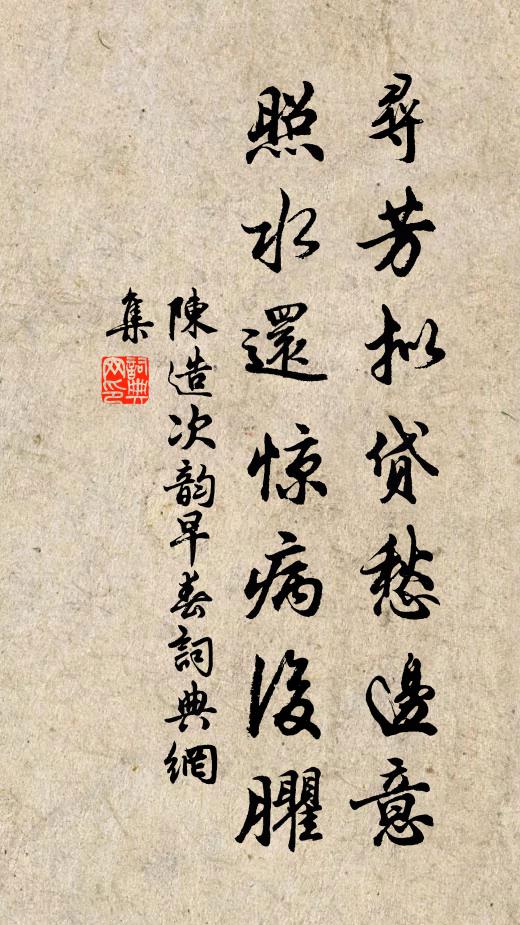 尋芳拟貸愁邊意
照水還惊病後臞
陳造次韵早春詞典網
集
詞典网印